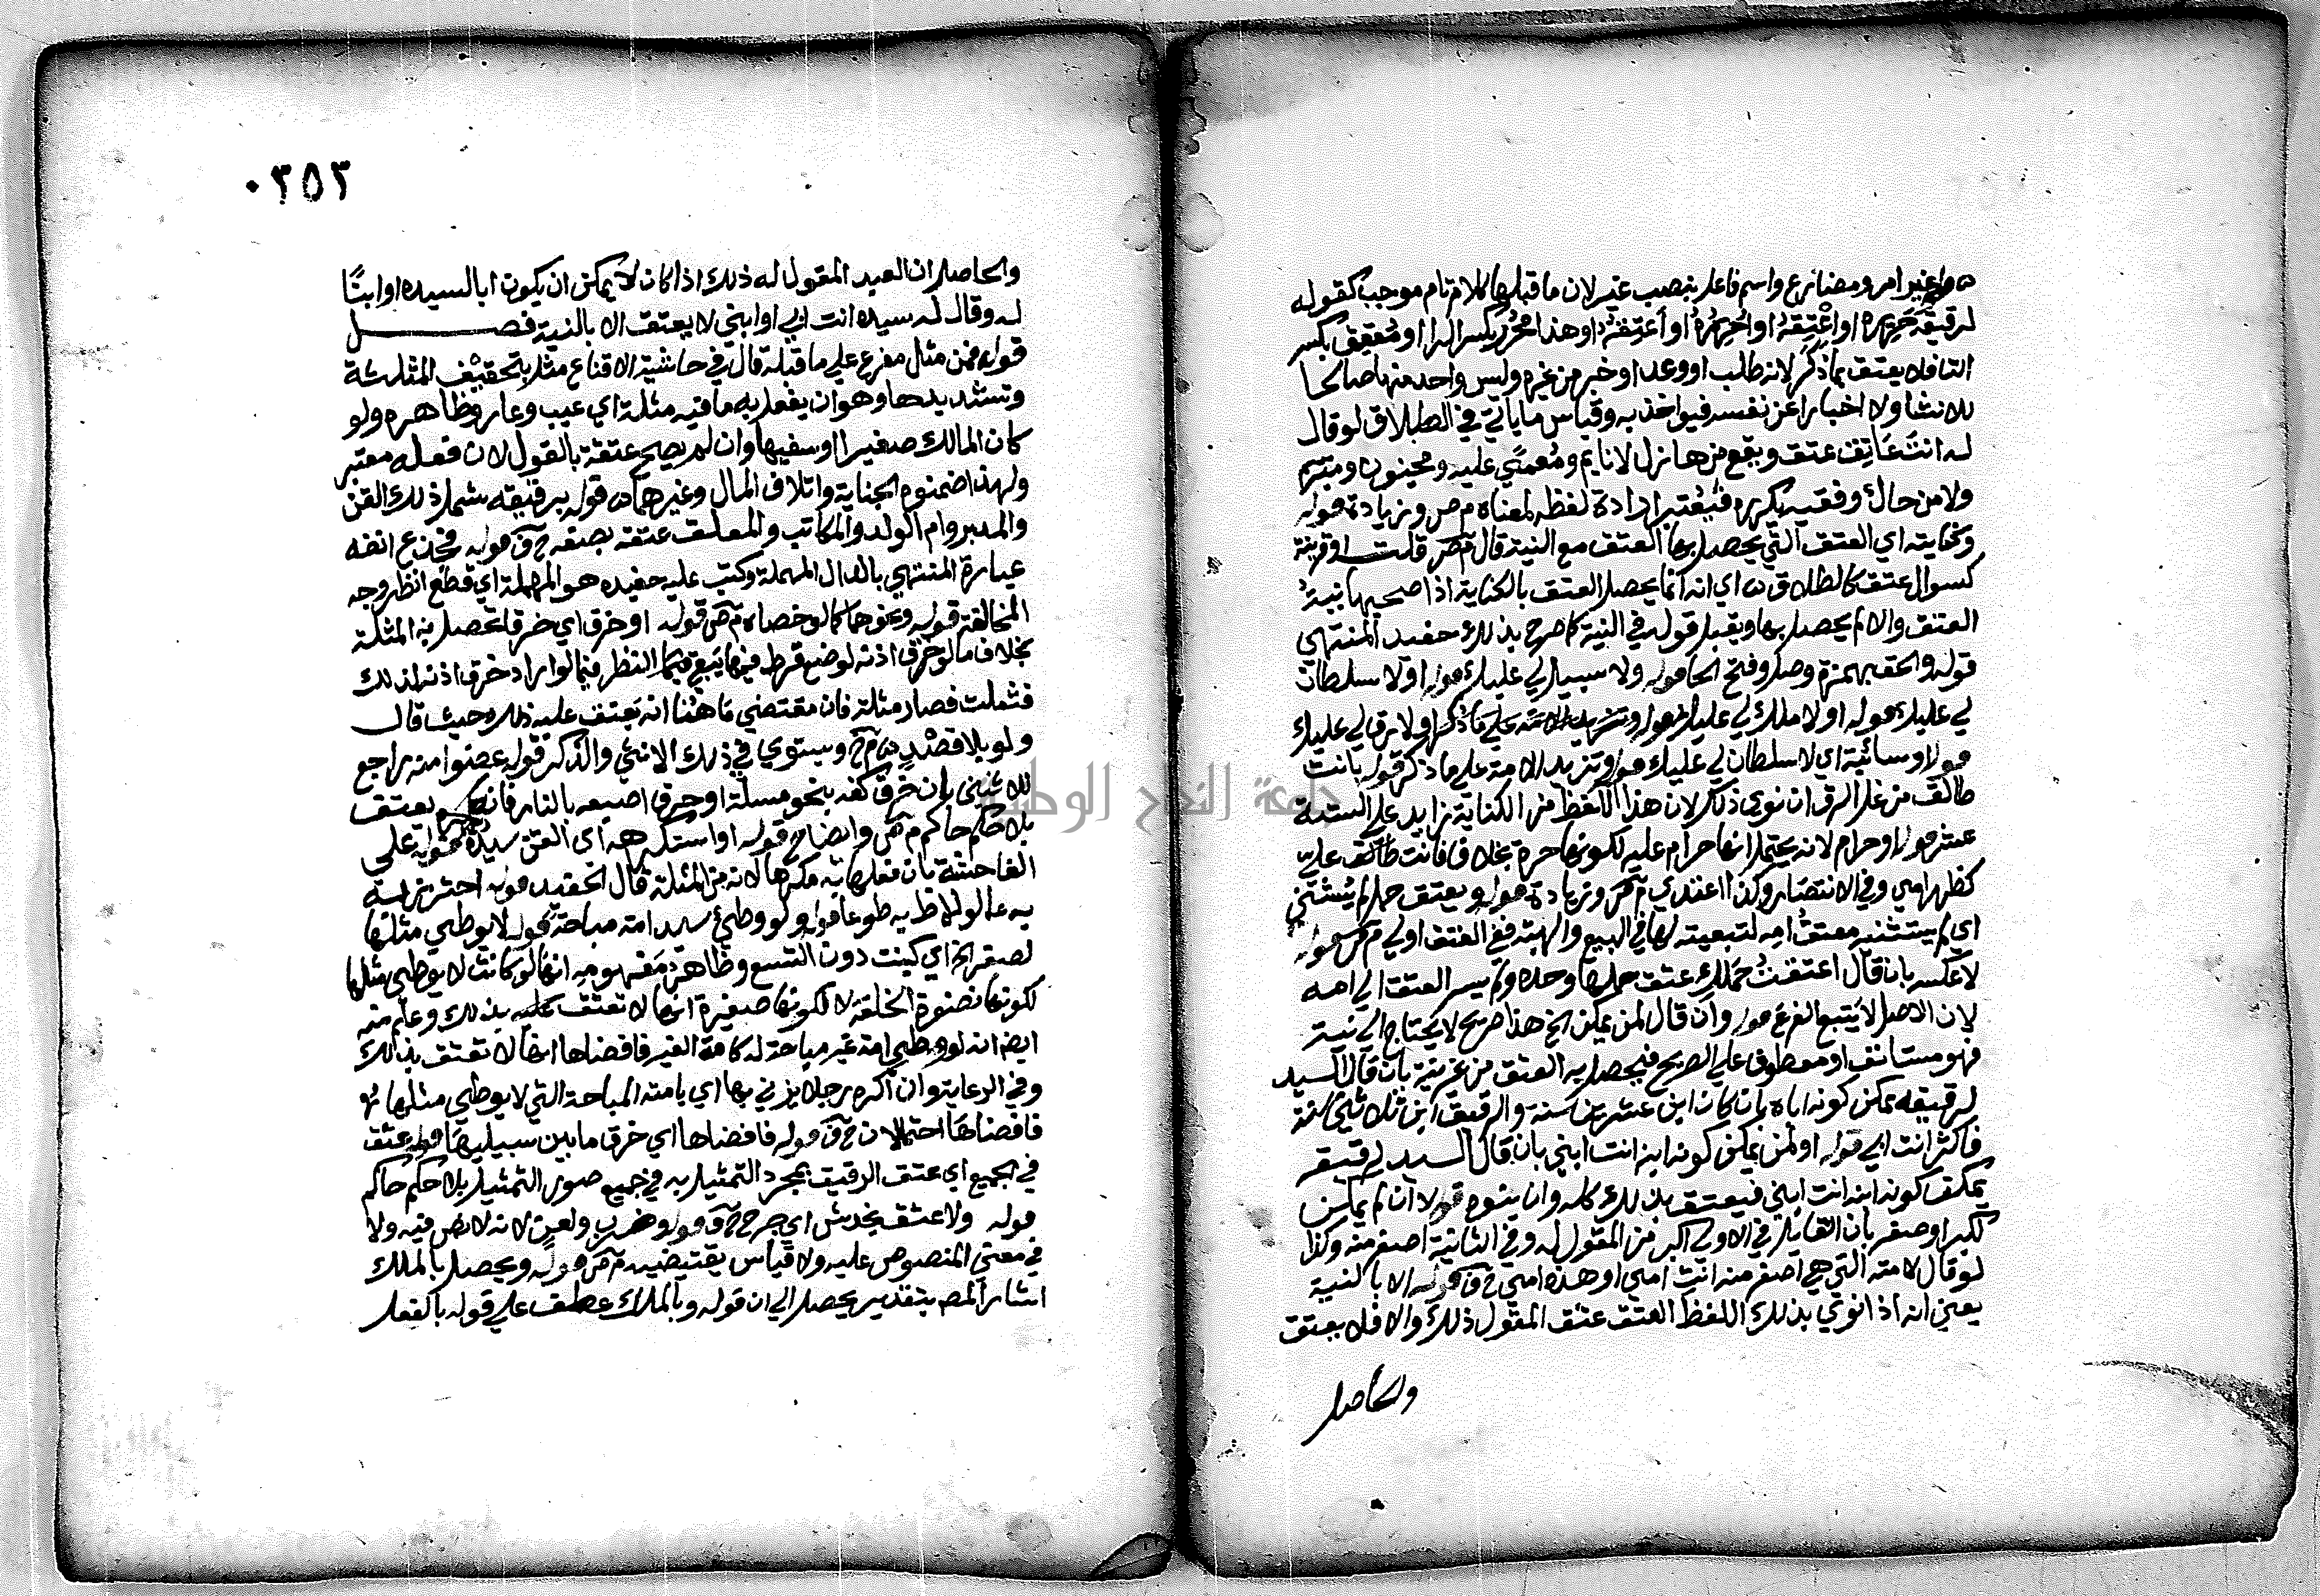 غير امر ومضارع واسم فاعل بنصب غير لان ما قبلها كلام تام موجب كقوله
لرقيقه حرره او اعتقه او احرره او أعتقه او هذا محرر بكسر الرا او معتق بكسر
التا فلا يعتق بما ذكر لانه طلب او وعد او خبر من غيره وليس واحد منها صالحا
للانشا ولا اخبارا عن نفسه فيواخذ به وقياس ما ياتي في الطلاق لو قال
له انت عاتق عتق ويقع من هازل لا نايم ومغمي عليه ومجنون ومبرسم
ولا من حاك وفقيه يكرره فيعتبر ارادة لفظه لمعناه م ص وزيادة قوله
وكنايته اي العتق التي يحصل بها العتق مع النية قال م ص قلت او قرينة
كسوال عتق كالطلاق اي انه انما يحصل العتق بالكناية اذا صحبها نية
العتق والا لم يحصل بها ويقبل قوله في النية كما صرح بذلك حفيد المنتهي
قوله والحق بهمزة وصل وفتح الحا قوله ولا سبيل لي عليك قوله او لا سلطان
لي عليك قوله او لا ملك لي عليك قوله او لا رق لي عليك
قوله وسائبة اي لا سلطان لي عليك قوله وتزيد الامة علي ما ذكر قوله بانت
طالق من غل الرق ان نوي ذلك لان هذا اللفظ من الكناية زايد علي الستة
عشر قوله او حرام لانه يحتمل انها حرام عليه لكونها حرة بخلاف فانت طالق علي
كظهر امي وفي الانتصار وكذا اعتدي م ص وزيادة قوله ويعتق حمل لم يستثني
اي لم يستثنه معتق امه لتبعيته لها في البيع والهبة ففي العتق اولي م ص قوله
لا عكسه بان قال اعتقت حملك عتق حملها وحده ولم يسر العتق الي امه
لان الاصل لا يتبع الفرع قوله وان قال لمن يمكن الخ هذا صريح لا يحتاج الي نية
فهو مستانف او معطوف علي الصريح فيحصل به العتق من غير نية بان قال السيد
لرقيقه يمكن كونه اباه بان كان ابن عشرين سنة والرقيق ابن ثلاثين سنة
فاكثر انت ابي قوله او لمن يمكن كونه ابنه انت ابني بان قال السيد لرقيقه
يمكن كونه ابنه انت ابني فيعتق بذلك كله وان لم ينوه قوله لا ان لم يمكن
لكبر او صغر بان القايل في الاولي اكبر من المقول له وفي الثانية اصغر منه وكذا
لو قال لامته التي هي اصغر منه انت امي او هذه امي ح ق قوله الا بالنية
يعني انه اذا نوي بذلك اللفظ العتق عتق المقول ذلك والا فلا يعتق
والحاصل
٠٣٥٣
والحاصل ان العبد المقول له ذلك اذا كان لا يمكن ان يكون ابا لسيده او ابنا
له وقال له سيده انت ابي او ابني لا يعتق الا بالنية فصل
قوله فمن مثل مفرع علي ما قبله قال في حاشية الاقناع مثل بتخفيف المثلثة
وتشديدها وهو ان يفعل به ما فيه مثلة اي عيب وعار وظاهره ولو
كان المالك صغيرا او سفيها وان لم يصح عتقه بالقول لان فعله معتبر
ولهذا ضمنوه الجناية واتلاف المال وغيرهما قوله برقيقه يشمل ذلك القن
والمدبر وام الولد والمكاتب والمعلق عتقه بصفة ح ق قوله فجدع انفه
عبارة المنتهي بالدال المهملة وكتب عليه حفيده هو المهملة اي قطع انظر وجه
المخالفة قوله ونحوهما كما لو خصاه م ص قوله او خرق اي خرقا تحصل به المثلة
بخلاف ما لو خرق اذنه لوضع قرط فيها يبقي النظر فيما لو اراد خرق اذنه لذلك
فثملت فصار مثلة فان مقتضي ما هنا انه يعتق عليه ذلك حيث قال
ولو بلا قصد م ح ويستوي في ذلك الانثي والذكر قوله عضوا منه راجع
للاثنين بان خرق كفه بنحو مسلة او حرق اصبعه بالنار فانه يعتق
بلا حكم حاكم م ص وايضاح قوله او استكرهه اي القن سيده قوله علي
الفاحشة بان فعلها به مكرها لانه من المثلة قال الحفيد قوله احترز به
به عما لو لاط به طوعا قوله ولو وطئ سيد امة مباحة قوله لا يوطي مثلها
لصغر الخ اي كبنت دون التسع وظاهره مفهومه انها لو كانت لا يوطي مثلها
لكونها نضوة الخلقة لا لكونها صغيرة انها لا تعتق عليه بذلك وعلم منه
ايضا انه لو وطي امة غير مباحة له كامة الغير فافضاها انها لا تعتق بذلك
وفي الرعاية وان اكره رجلا يزني بها اي بامته المباحة التي لا يوطي مثلها
فافضاها احتمالان ح ق قوله فافضاها اي خرق ما بين سبيليها قوله عتق
في الجميع اي عتق الرقيق بمجرد التمثيل به في جميع صور التمثيل بلا حكم حاكم
قوله ولا عتق بخدش اي جرح ح ق قوله وضرب ولعن لانه لا نص فيه ولا
في معني المنصوص عليه ولا قياس يقتضيه م ص قوله ويحصل بالملك
اشار المص بتقدير يحصل الي ان قوله وبالملك عطف علي قوله بالفعل